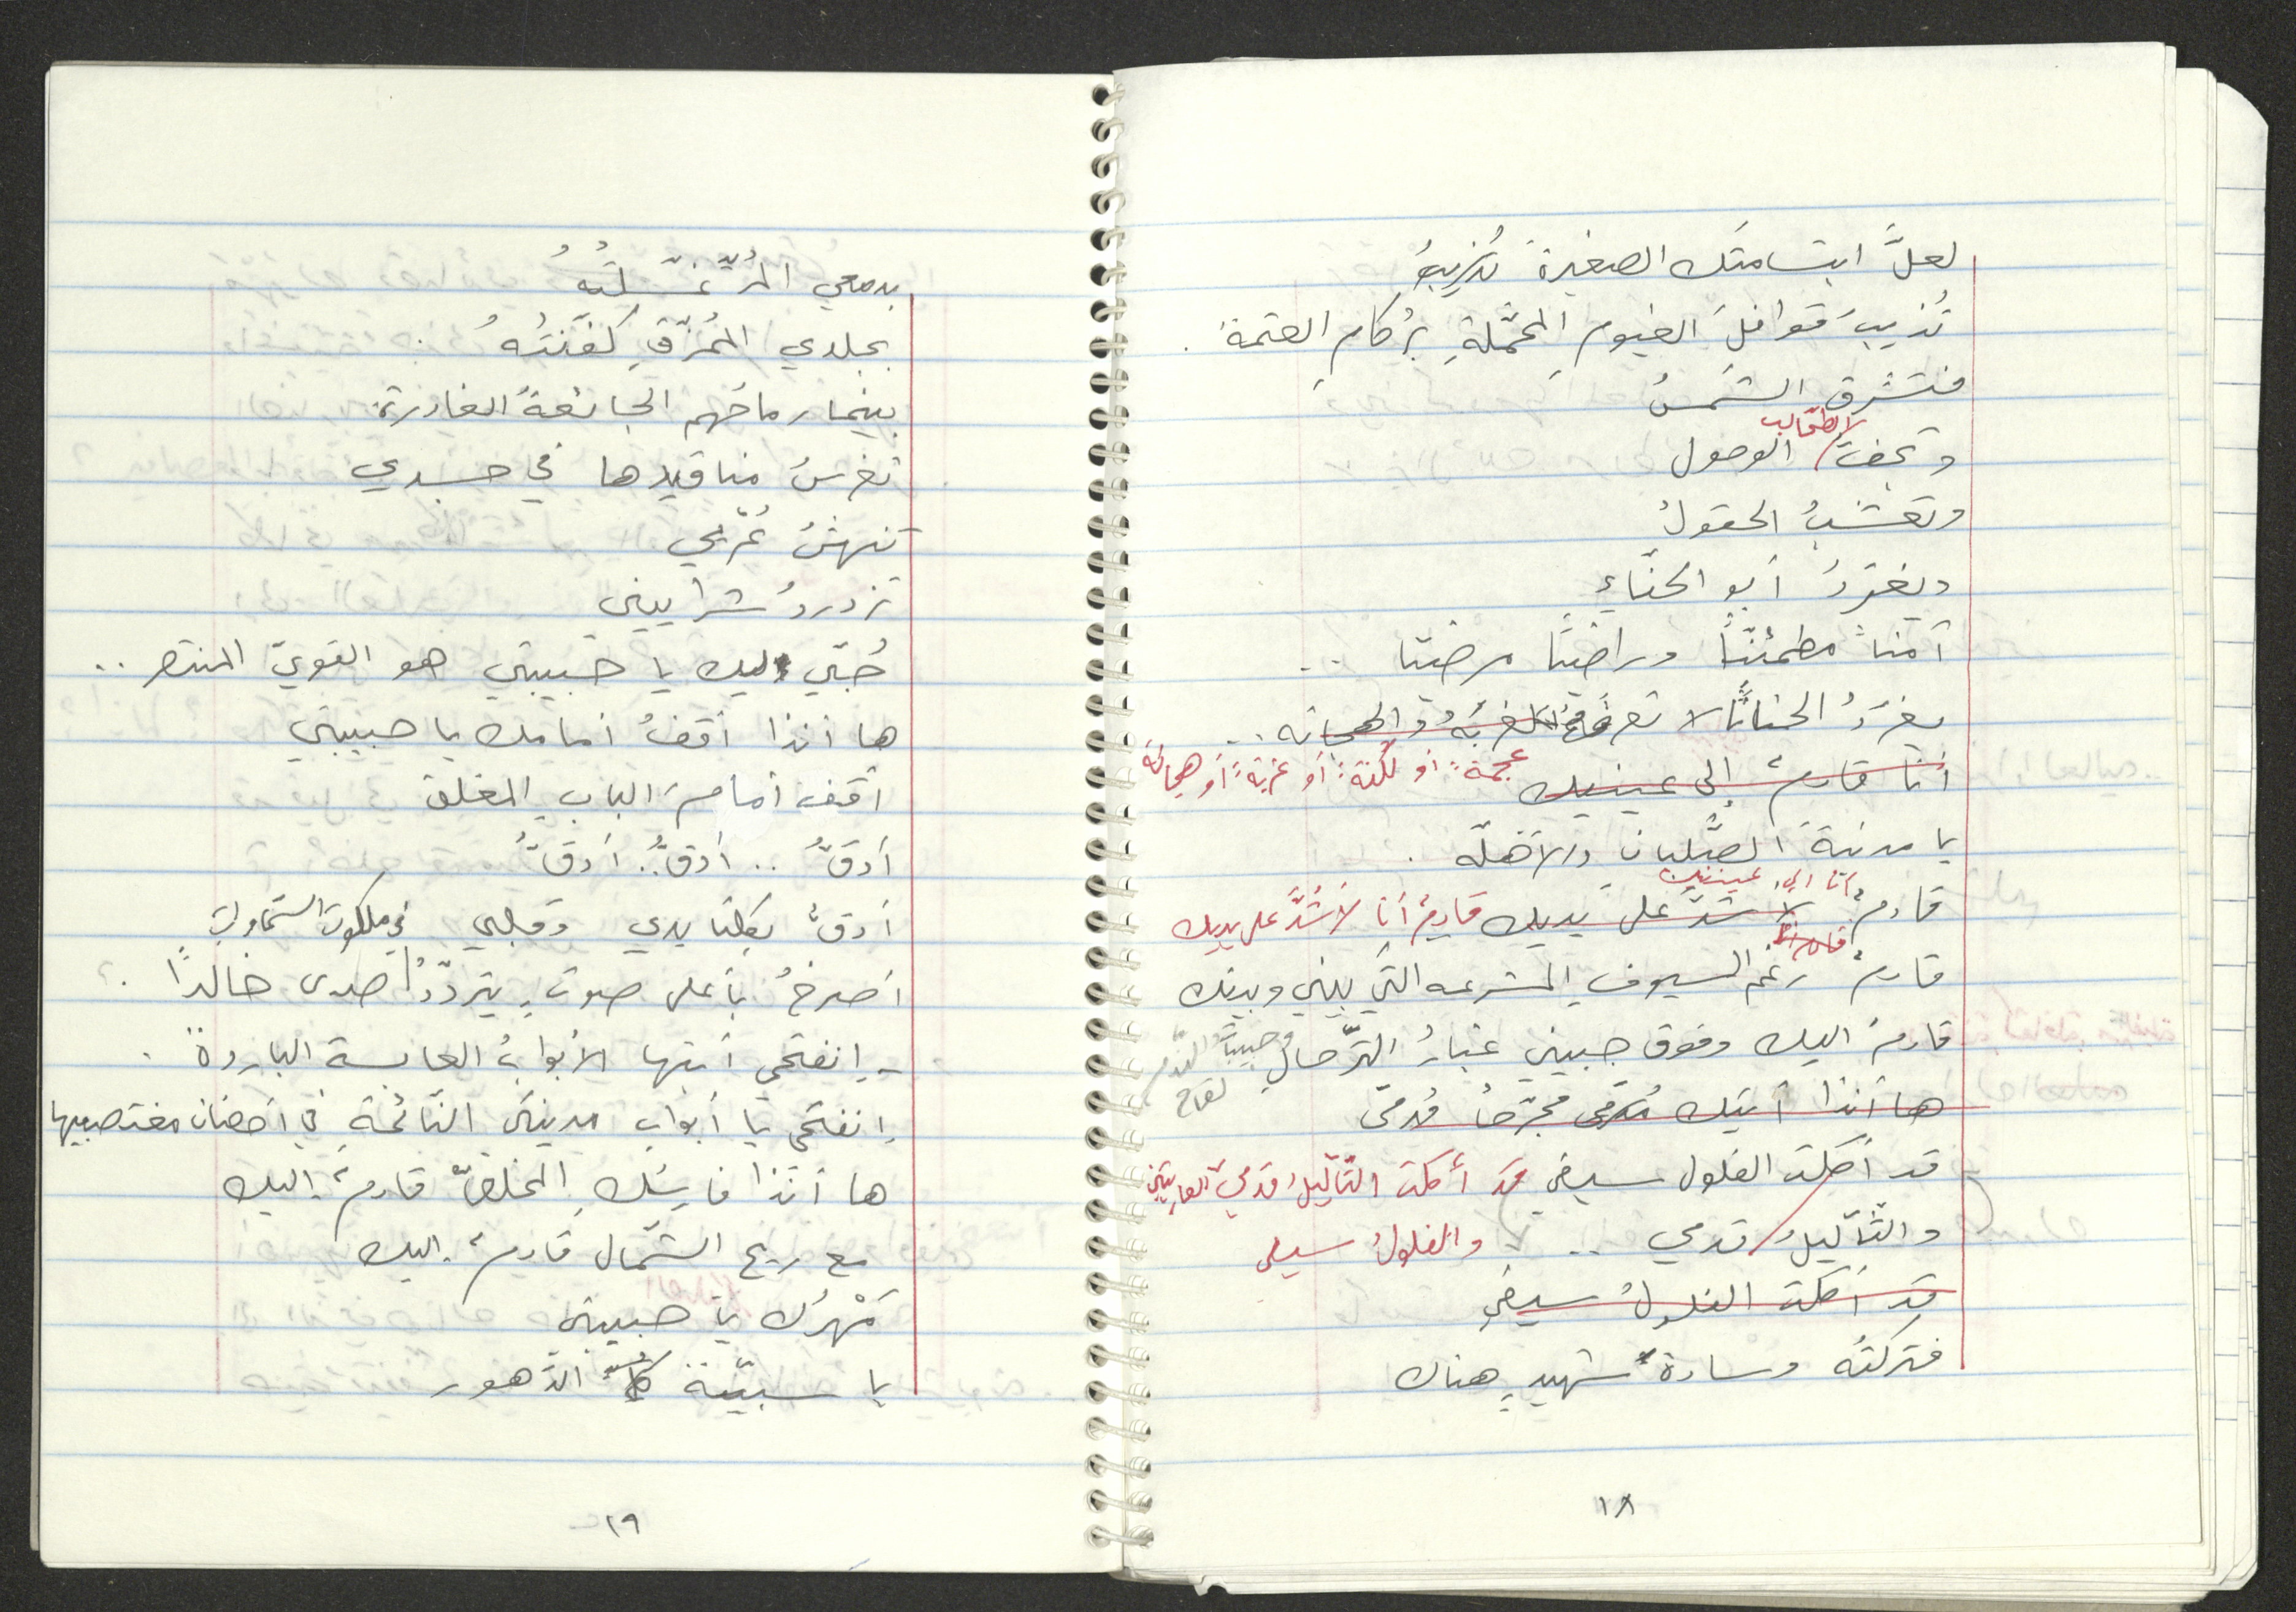 لعلَّ ابتسامتَك الصغيرةَ تُذيبُ
تُذيبَ قوافلَ الغيومِ المحمّلةِ برُكامِ العتمة .
فتشرق الشمسُ
الطحالب
وتجفّ الوحول
وتعشبُ الحقولُ
ويغرّدُ أبو الحنّاءِ
آمناً مطمئنّاً وراضيًا مرضيّا ..
يغرّدُ الحنانَ لا تعرفُ الغربةُ والهجانه ..
عجمةً أو لُكنةً أو غربةً أو هجانة
أنا قادمٌ إلى عينيك
يا مدينةَ الصُّلبانِ والأهلّه .
أنا إلى عينيك
قادمٌ لأشدَّ على يديك قادمٌ أنا لأشُدَّ على يديك
قادمٌ رغم السيوفِ المشرعه التي بيني وبينك
قادمٌ اليك وفوق جبيني غبارُ التّرحالِ
ها أنذا آتيك مُدمى مجرّحاً مُدمّى
قد أكلت الفلول سيفي قد أكلت الثّآليلُ قدميَ العاريتين
والثّآليلُ قدمي .. والفلولُ سيفي
قد أكلت الفلولُ سيفي
فتركتُه وسادةً لشهيدٍ هناك
١٨
بدمعي المُرّ غسّلتُهُ
بجلدي المُمزّقِ كفّنتُهُ .
بينما رماحُهم الجائعةُ الغادرة
تغرسُ مناقيدها في جسدي
تنهشُ عُريي
تزدردُ شراييني
حُبّي إليك يا حبيبتي هو القويّ المنتصر ..
ها أنذا أقفُ أمامك يا حبيبتي
أقف أمامَ الباب المغلق
أدقُّ .. أدقُّ .. أدقُّ
أدقُّ بكلتا يدي وقلبي في ملكوت السّماوات
أصرخُ بأعلى صوتٍ يتردّدُ صدى خالداً .
- إنفتحي أيتها الأبوابُ العابسة الباردة .
إنفتحي يا أبواب مدينتي النّائمةِ في أحضان مغتصبيها
ها أنذا فارسُكِ المخلصُ قادمٌ إليك
مع ريح الشّمال قادمٌ إليك
مَهْرُك يا حبيبتي
يا سبيّةَ كلّ الدّهور
١٩